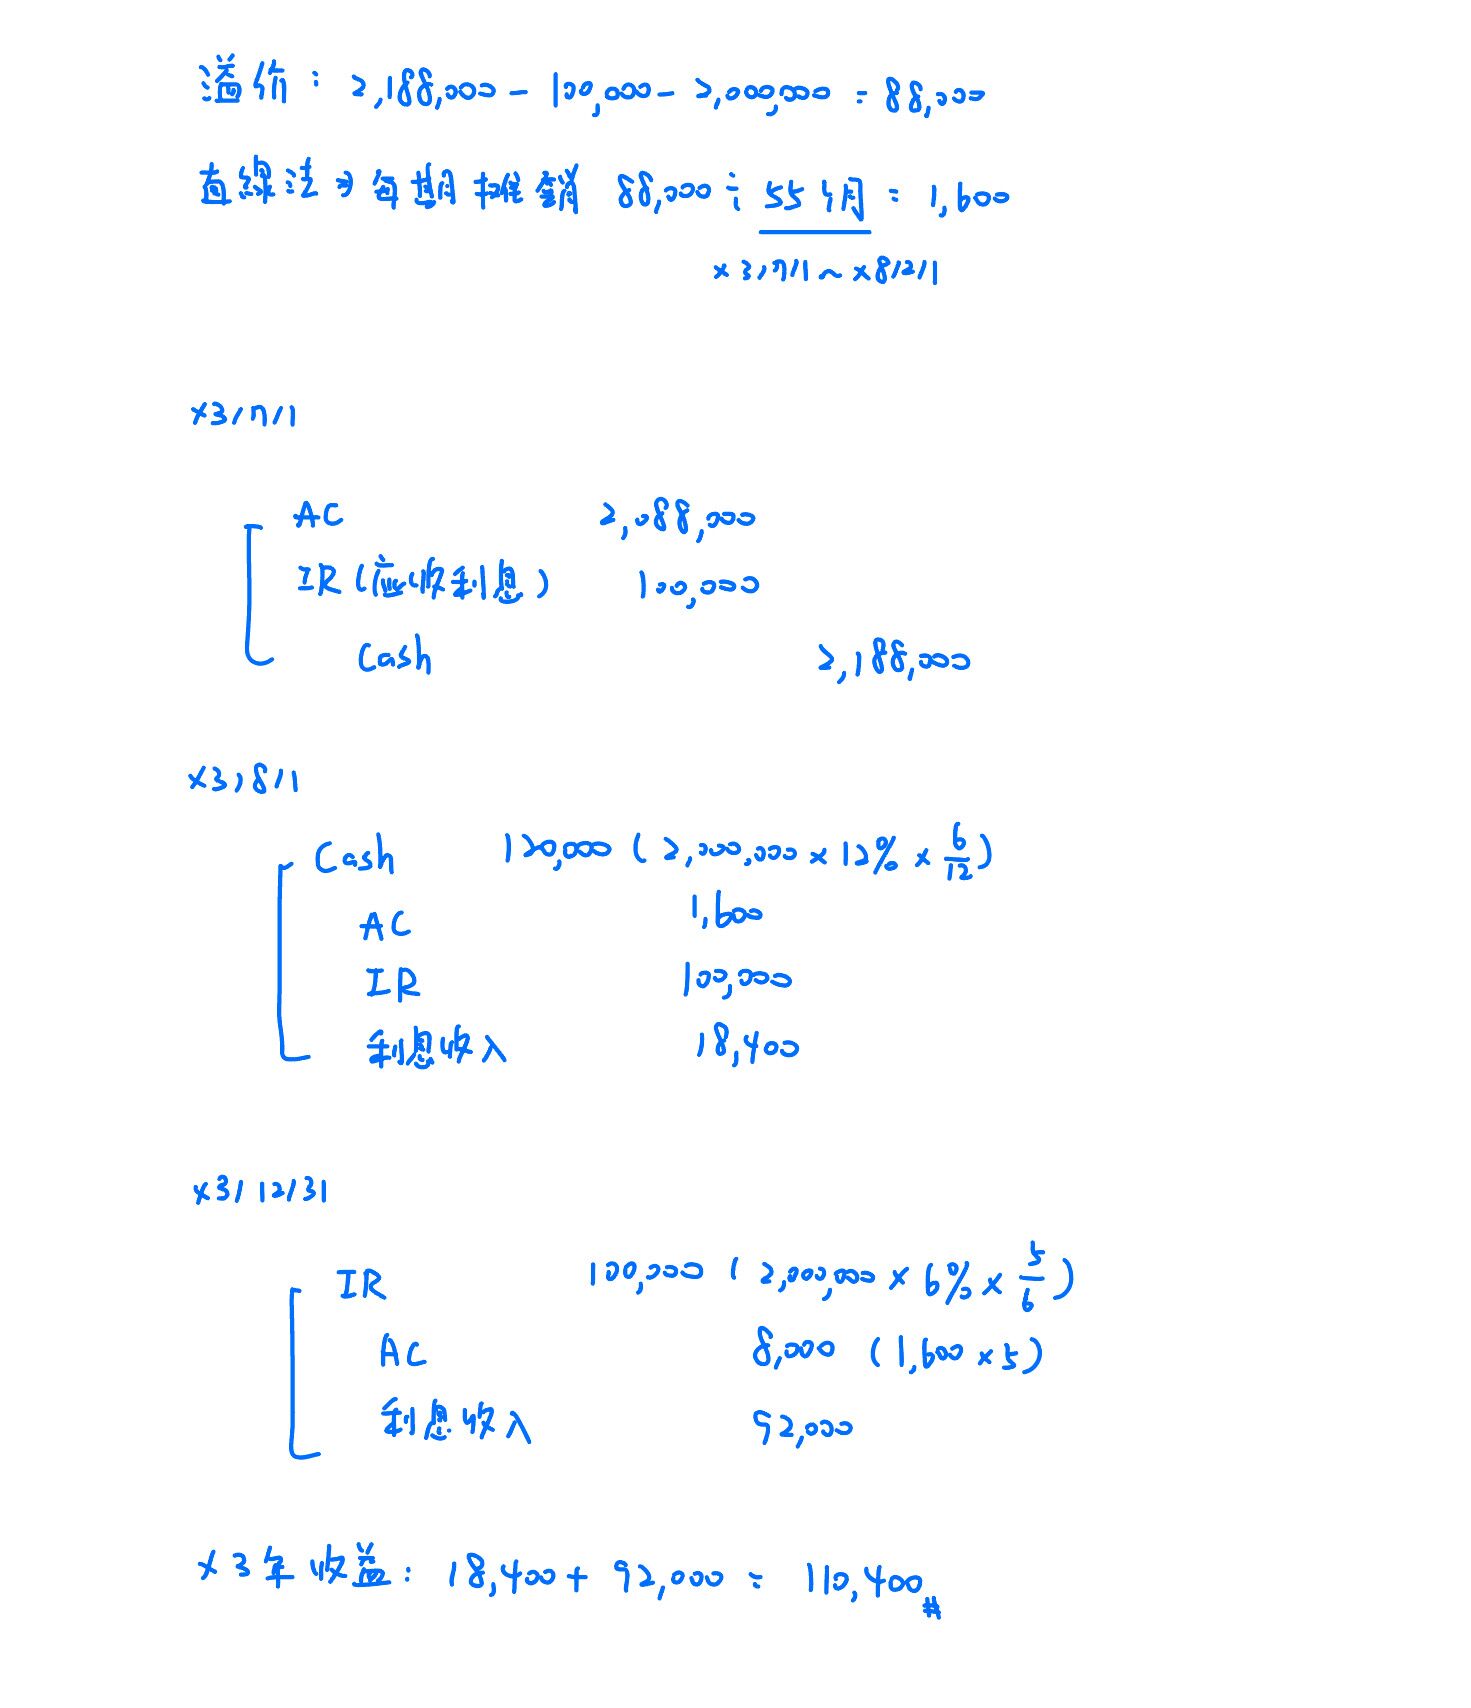 溢价：2,188,000 - 100,000 - 2,000,000 = 88,000
直線法⇒每期摊銷 88,000 ÷ 55个月 = 1,600
x3/7/1 ~ x8/2/1
x3/7/1
AC 2,088,000
IR (应收利息) 100,000
Cash 2,188,000
x3/8/1
Cash 120,000 (2,000,000 × 12% × 6/12)
AC 1,600
IR 100,000
利息收入 18,400
x3/12/31
IR 100,000 (2,000,000 × 6% × 5/6)
AC 8,000 (1,600 × 5)
利息收入 92,000
x3年收益：18,400 + 92,000 = 110,400#